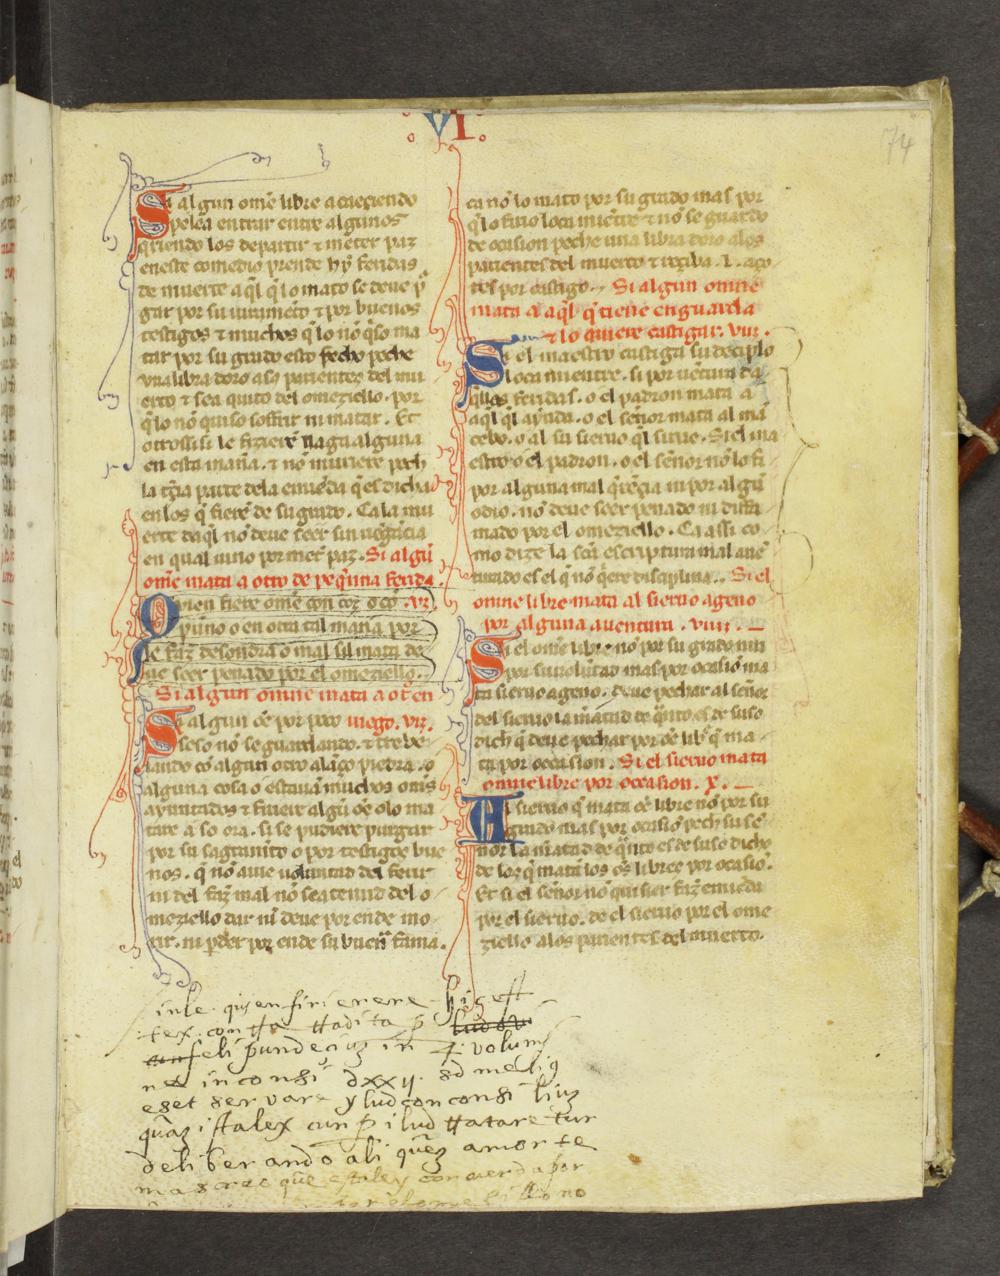 VI.
74
Si algun omẽ libre acaeçiendo
pelea entrar entre algunos
q̃riendo los departir ⁊ meter paz
en este comedio prende hy̆ feridas
de muerte aq̃l q̃ lo mato se deve p̃
gar por su iuramẽto ⁊ por buenos
testigos ⁊ muchos q̃ lo nõ q̃so ma
tar por su grado esto fecho peche
vna libra doro a los parientes del mu
erto ⁊ sea quito del omeziello. por
q̃ lo nõ quiso soffrir ni matar. Et
otrossi si le fizierẽ llaga alguna
en esta manã. ⁊ nõ muriere pech
la tçia parte dela emiẽda q̃ es dicha
en los q̃ fierẽ de su grado. Ca la mu
erte daq̃l nõ deve seer sin uẽgãcia
en qual uino por meter paz. Si algũ
omẽ mata a otro de peq̃ña ferida.
Quien fiere omẽ con coz o cõ .VI.
puño o en otra tal manã por
le faz̃ desondra o mal si l mata de
ue seer penado por el omeziello.
Si algun omne mata a ot̃ en
Si algun oẽ por poco iuego. VII.
seso nõ se guardando. ⁊ trebe
iando cõ algun otro alãço piedra. o
alguna cosa o estauã muchos omẽs
ayuntados ⁊ firiere algũ oẽ o lo ma
tare a so ora. si se pudiere purgar
por su sagramẽto o por testigos bue
nos. q̃ nõ auie uoluntad del ferir
ni del faz̃ mal nõ sea tenud del o
meziello dar nĩ deue por ende mo
rir. ni p̃der por ende su buenã fama.
ca nõ lo mato por su grado mas por
q̃ lo firio loca mẽtre ⁊ nõ se guardo
de ocasion peche una libra doro a los
parientes del muerto ⁊ reçiba .L. aço
tes por castigo. Si algun omne
mata a aq̃l q̃ tiene en guarda
⁊ lo quiere castigar. VIII.
Si el maestro castiga su deçiplo
loca mientre. si por uẽtura da
q̃llas feridas. o el padron mata a
aq̃l q̃l ayuda. o el señor mata al mã
cebo. o al su sieruo q̃l sirue. Si el ma
estro o el padron. o el señor nõ lo fi
por alguna mal q̃rẽçia ni por algũ
odio. nõ deue seer penado ni diffa
mado por el omeziello. Ca assi co
mo dize la scã escriptura mal auẽ
turado es el q̃ nõ q̃ere disciplina. Si el
omne libre mata al sieruo ageno
por alguna auentura. VIIII.
Si el omẽ libre nõ por su grado nin
por su uolũtad mas por ocasiõ ma
ta sieruo ageno. deue pechar al señor
del sieruo la meatad de q̃nto es de suso
dich q̃ deue pechar por oẽ lib̃ q̃ ma
ta por occasion. Si el sieruo mata
omne libre por occasion. X.
Al sieruo q̃ mata oẽ libre nõ por su
grado mas por ocasiõ pech su se
ñor la meatad de q̃nto es de suso dicho
de los q̃ matã los oẽs libres por ocasiõ.
Et si el señor nõ quisier faz̃ emiẽda
por el sieruo. de el sieruo por el ome
ziello a los parientes del muerto.
hic est
lex
in
volum
in consi dxxij. sed meliꝯ
eset servare
deliberando ali amorte